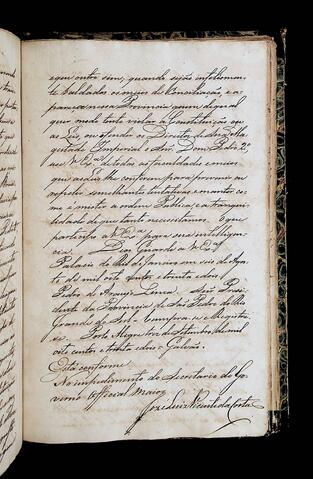 e que outro sim, quando sejão infelizmen
te baldados os meios de Conciliação, e a
pareça nessa Provincia quem de qual
quer modo tente violar a Constituição ou
as Leis, ou ofender os Direitos do Sr. D.
gestade Imperial o Snr. Dom Pedro 2º
use V Exª de todas as faculdades e meios
que as Leis lhe conferem para provenir ou
repellir semelhantes tentativas e manter co
mo é mister a ordem Publica, e a tranqui
lidade de que tanto necessitamos. O que
participo a V Exª para sua intelligen
cia. Deos Guarde a V Exª
Palacio do Rio de Janeiro em seis de Agos
to de mil oito centos e trinta e dois
Pedro de Araujo Lima. Snr. Presi
dente da Provincia de São Pedro do Rio
Grande do Sul. Cumpra-se e Registe
se. Porto Alegre de Setembro de mil
oito centos e trinta e dois. Galvão.
Está conforme
No impedimento do Secretario do Go
verno O Official Maior
José Luiz Vicente da Costa